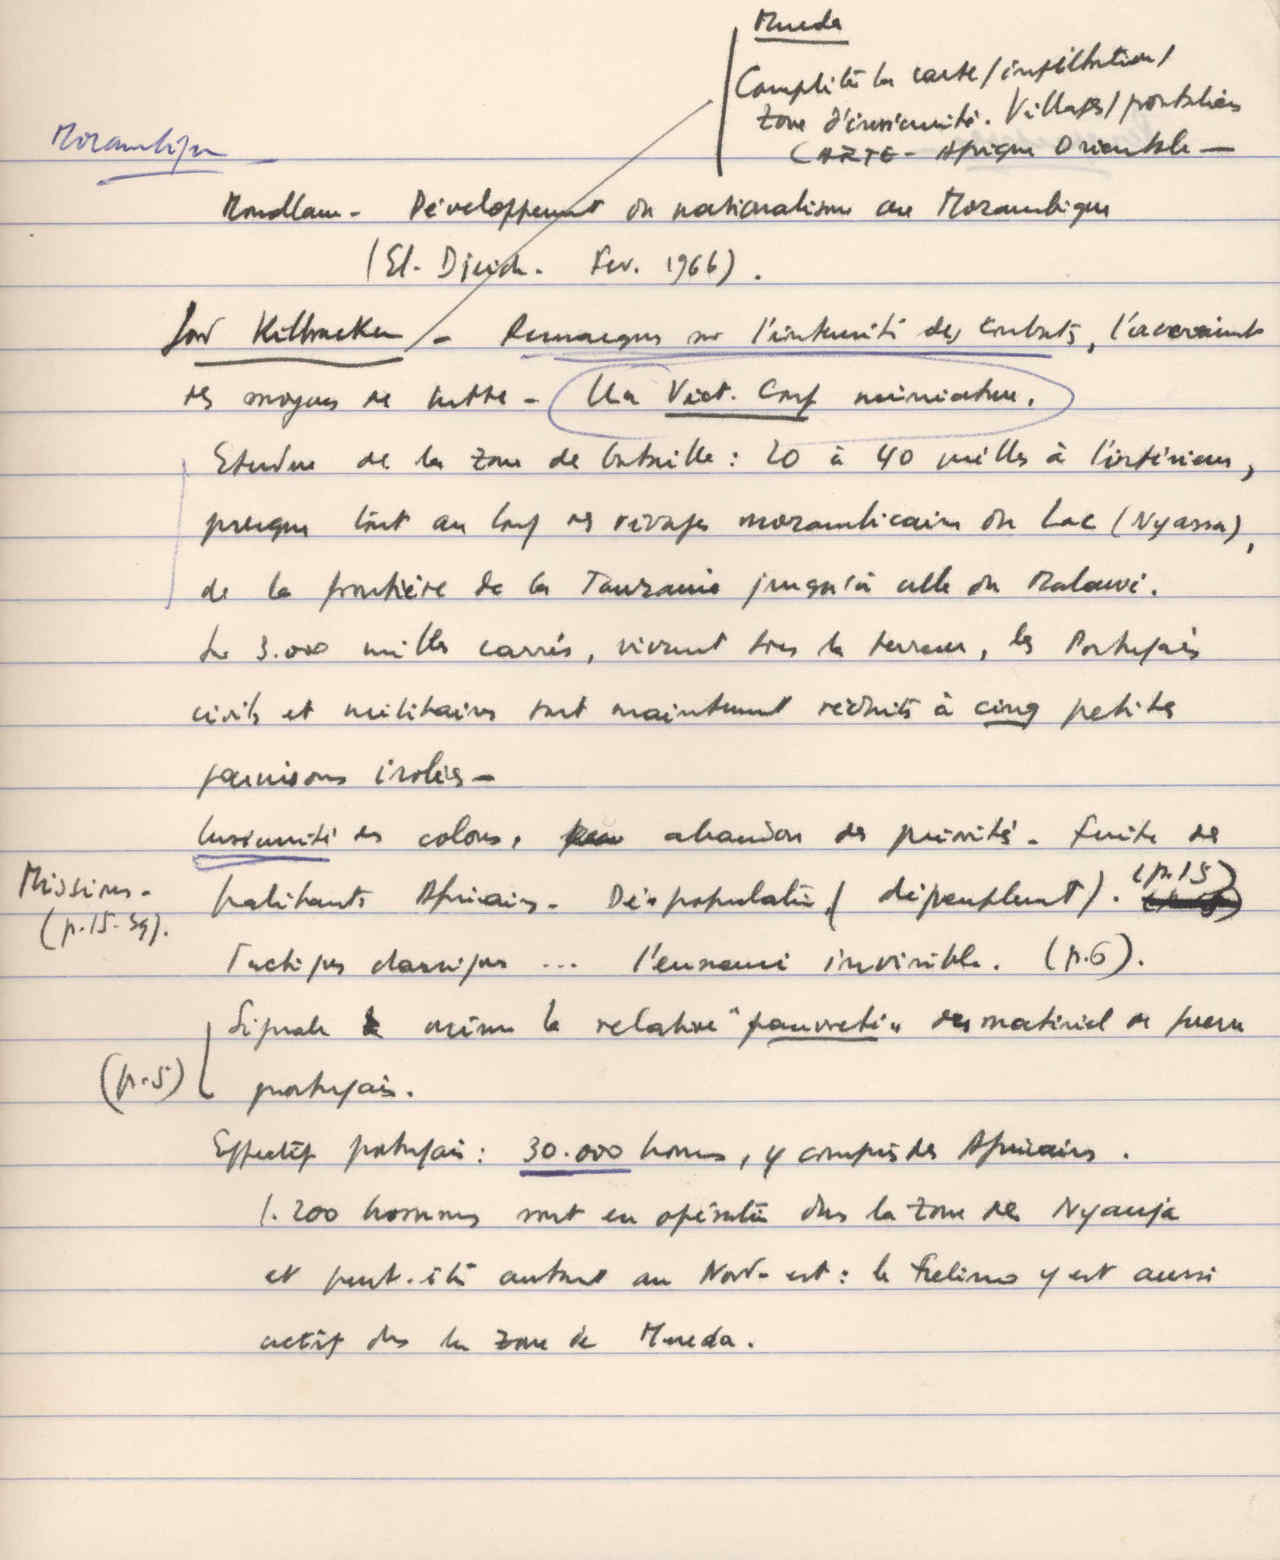 Mueda
Compléter la carte / infiltration /
Zone d'insécurité. Villages / frontaliers
CARTE - Afrique Orientale -
Mozambique
Mondlane - Développement du nationalisme au Mozambique
(El. Djeich. Fev. 1966).
Lord Kilbracken - Remarques sur l'intensité des combats, l'
des moyens de lutte - Un Viet. Cong miniature.
Etendue de la zone de bataille : 20 à 40 milles à l'intérieur,
presque tout au long des rivages mozambicains du Lac (Nyassa),
de la frontière de la Tanzanie jusqu'à celle du Malawi.
Sur 3.000 milles carrés, vivant sous la terreur, les Portugais
civils et militaires sont maintenant réduits à cinq petites
garnisons isolées -
Insécurité des colons, abandon des priorités - fuite des
Missions -
(p.15-sq).
habitants Africains - Dépopulation (dépeuplement). (p.15)
Tactiques classiques ... l'ennemi invisible. (p.6).
Signale même la relative "pauvreté" des matériel de guerre
(p.5)
portugais.
Effectif portugais : 30.000 hommes, y compris des Africains.
1.200 hommes sont en opération dans la zone des Nyanja
et peut-être autant au Nord-est : le Frelimo y est aussi
actif dans la zone de Mueda.